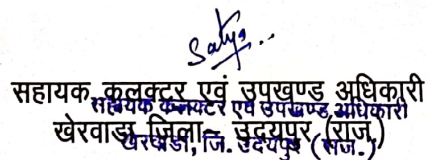 Satya..
सहायक कलक्टर एवं उपखण्ड अधिकारी
सहायक कलक्टर एवं उपखण्ड अधिकारी
खेरवाडा जिला- उदयपुर (राज.)
खेरवाडा, जि. उदयपुर (राज.)